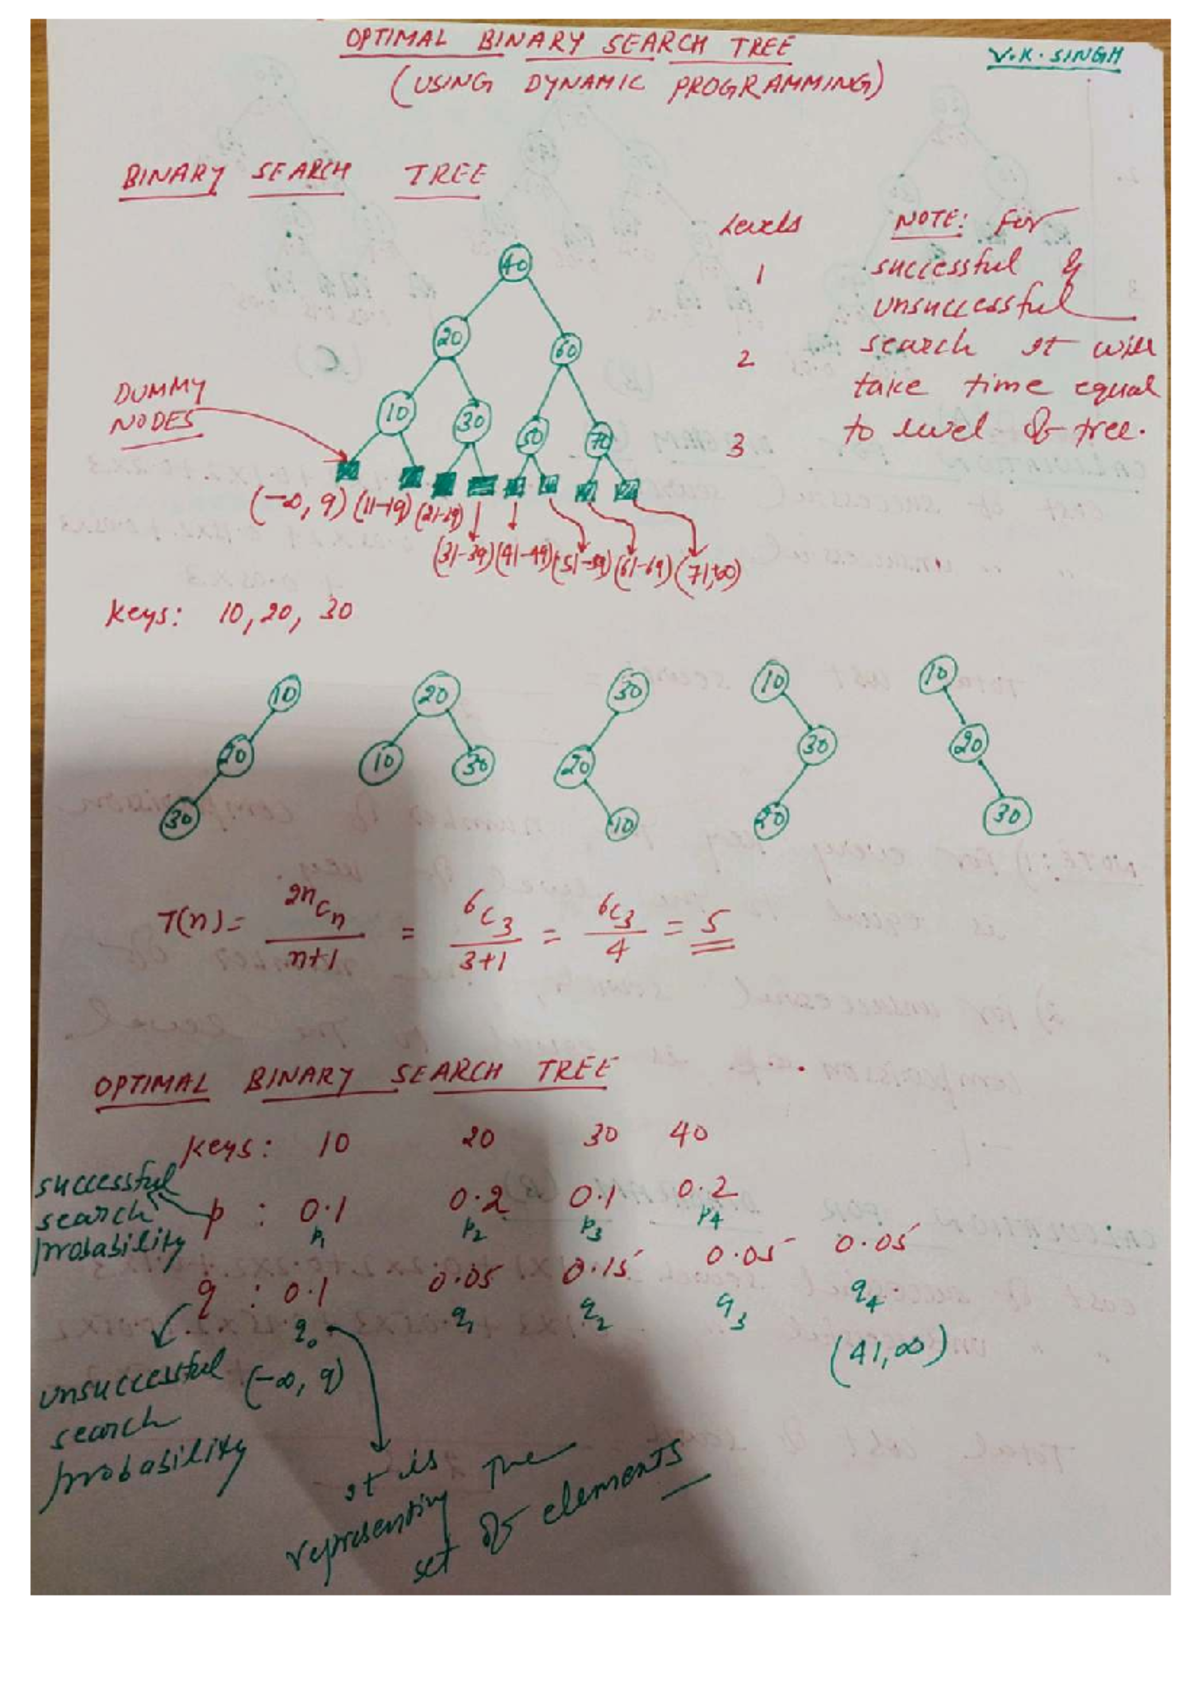 OPTIMAL BINARY SEARCH TREE
V.K. SINGH
(USING DYNAMIC PROGRAMMING)
BINARY SEARCH TREE
Levels
NOTE: For
successful &
unsuccessful
search it will
take time equal
to level of tree.
1
2
3
40
20 60
10 30 50 70
DUMMY
NODES
(-∞, 9) (11-19) (21-29)
(31-39) (41-49) (51-59) (61-69) (71,∞)
Keys: 10, 20, 30
10 20 30 10 10
20 10 30 20 30 20
30 10 20 30
T(n) = 2nCn / n+1 = 6C3 / 3+1 = 6C3 / 4 = 5
OPTIMAL BINARY SEARCH TREE
Keys: 10 20 30 40
successful
search
probability
p : 0.1 0.2 0.1 0.2
P1 P2 P3 P4
q : 0.1 0.05 0.15 0.05 0.05
q0 q1 q2 q3 q4
(-∞, 9) (41, ∞)
unsuccessful
search
probability
It is
representing the
set of elements